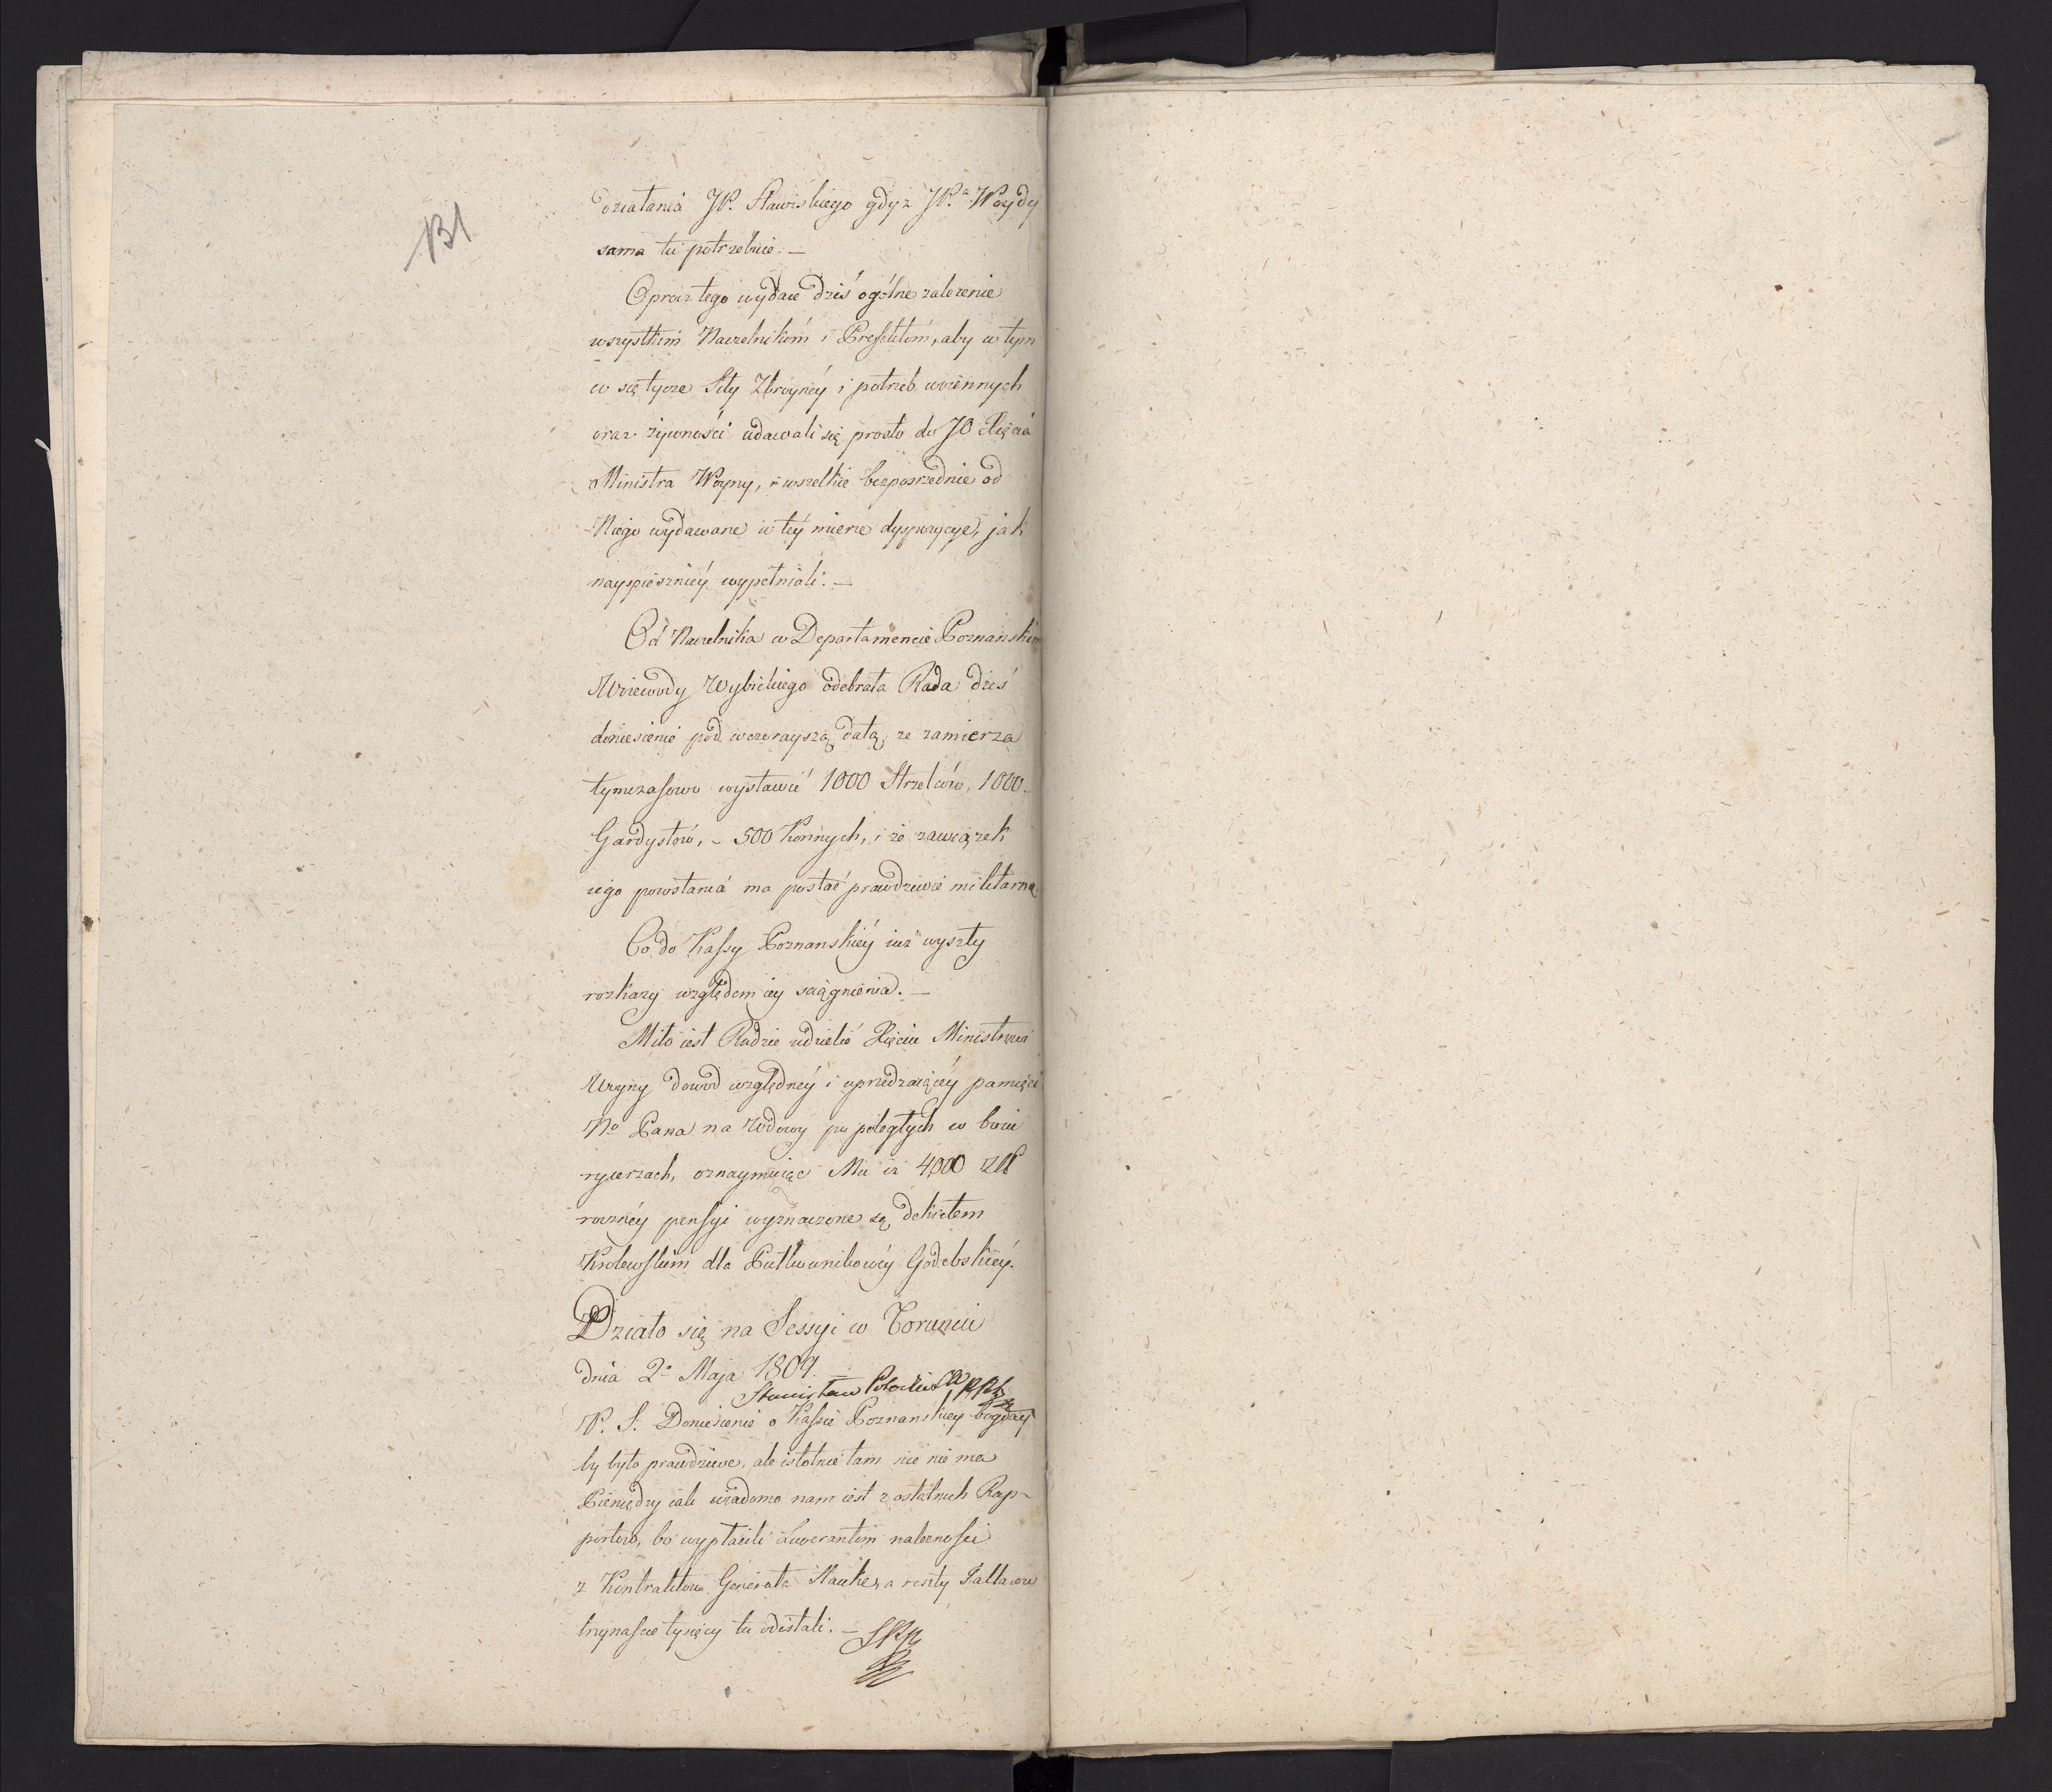 131
działania JP. Stawiskiego gdyż JP.ª Woydy
sama tu potrzebnie. —
Oprócz tego wydaie dziś ogólne zalecenie
wszystkim Naczelnikóm i Prefektóm, aby w tym
co się tycze Siły Zbroynéy i potrzeb woiennych
oraz żywności udawali się prosto do JO Xięcia
Ministra Woyny, i wszelkie bezposrzednie od
Niego wydawane w téy mierze dyspozycye, jak
nayspieszniéy wypełniali. —
Od Naczelnika w Departamencie Poznańskim
Woiewody Wybickiego odebrała Rada dziś
doniesienie pod wczorayszą datą, że zamierza
tymczasowo wystawić 1000 Strzelców, 1000
Gardystów, - 500 Konnych, i że zawiązek
iego powstania ma postać prawdziwie militarną.
Co do Kassy Poznanskiéy iuż wyszły
rozkazy względem iey sciągnienia. —
Miło iest Radzie udzielić Xięciu Ministrowi
Woyny dowod względnéy i uprzedzaiącéy pamięci
No Pana na Wdowy po poległych w boiu
rycerzach, oznaymuiąc Mu iż 4000 Złł
rocznéy pensyi wyznaczone są dekretem
Królewskim dla Pułkownikowéy Godebskiéy.
Działo się na Sessyi w Toruniu
dnia 2º Maja 1809. —
Stanisław Potocki
P. S. Doniesienie o Kassie Poznanskiey bogday
by było prawdziwe, ale istotnie tam nic nie ma
Pieniędzy iak wiadomo nam iest z ostatnich Rap-
portów, bo wypłacili Liwerantom należnosci
z Kontraktów Generała Hauke, a reszty Tallarów
trzynascie tysięcy tu odesłali. —